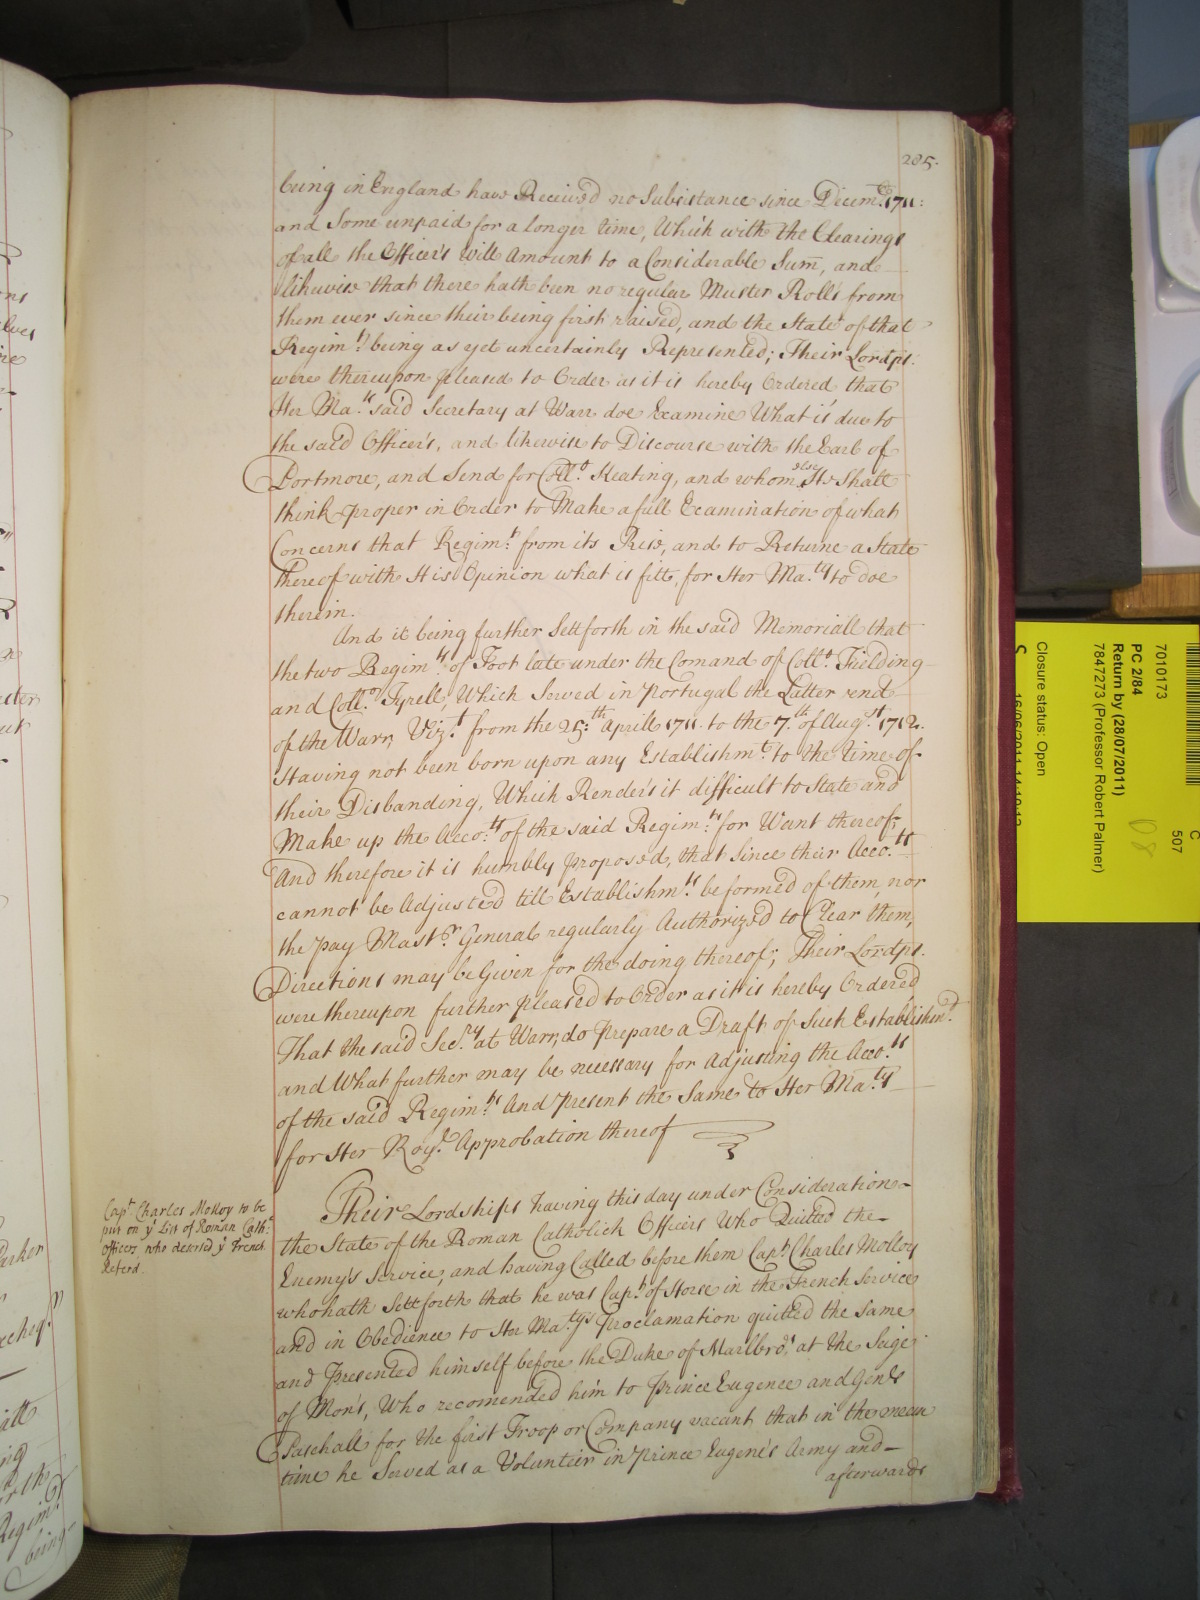 205.
being in England have Received no Subsistance since Decem.r 1711:
and Some unpaid for a longer time, Which with the Clearings
of all the Officers Will Amount to a Considerable Sum, and
likewise that there hath been no regular Muster Rolls from
them ever since their being first raised, and the State of that
Regim.t being as yet uncertainly Represented; Their Lordps.
were thereupon pleased to Order as it is hereby Ordered that
Her Ma.ts said Secretary at Warr doe Examine What is due to
the said Officers, and likewise to Discourse with the Earl of
Portmore, and Send for Coll.o Keating, and whom else He Shall
think proper in Order to Make a full Examination of what
Concerns that Regim.t from its Rise, and to Returne a State
thereof with His Opinion what is fitt, for Her Ma.ty to doe
therein.
And it being further Settforth in the said Memoriall that
the two Regim.ts of Foot late under the Comand of Coll.o Fielding
and Coll.o Tyrell, Which Served in Portugal the Latter end
of the Warr, Viz.t from the 25.th Aprill 1711. to the 7.th of Aug.st 1712.
Having not been born upon any Establishm.t to the time of
their Disbanding, Which Renders it difficult to State and
Make up the Acco.ts of the said Regim.ts for Want thereof;
And therefore it is humbly proposed, that since their Acco.ts
cannot be Adjusted till Establishm.ts be formed of them, nor
the pay Mast.r General regularly Authorized to Clear them,
Directions may be Given for the doing thereof; Their Lordps.
were thereupon further pleased to Order as it is hereby Ordered
That the said Sec.ry at Warr, do prepare a Draft of Such Establishm.t
and What further may be necessary for Adjusting the Acco.ts
of the said Regim.ts And Present the Same to Her Ma.ty
for Her Roy.l Approbation thereof
Cap.t Charles Molloy to be
put on y.e List of Roman Cath.c
officers who deserted y.e French
Their Lordships having this day under Consideration
the State of the Roman Catholick Officers Who Quitted the
Enemy's Service, and having Called before them Cap.t Charles Molloy
who hath Settforth that he was Cap.t of Horse in the French Service
and in Obedience to Her Ma.tys Proclamation quitted the same
and Presented himself before the Duke of Marlbro' at the Seige
of Mons, Who recomended him to Prince Eugene and Gen.l
Paschall for the first Troop or Company vacant that in the mean
time he Served as a Volunteir in Prince Eugene's Army and
afterwards
7010173
PC 2/84
Return by (28/07/2011)
7847273 (Professor Robert Palmer)
Closure status: Open
C
507